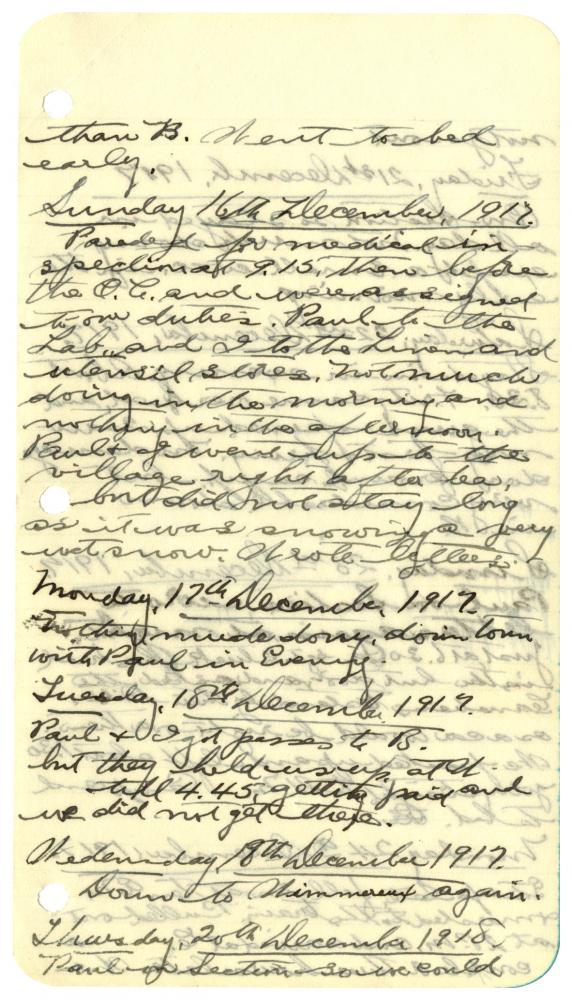 than B. Went to bed
early.
Sunday 16th December, 1917.
Paraded for medical in
spection at 9.15, then before
the O.C. and were assigned
to our duties. Paul to the
Lab, and I to the Linen and
utensil stores. Not much
doing in the morning and
nothing in the afternoon.
Paul & I went up to the
village right after tea,
but did not stay long
as it was snowing a very
wet snow. Wrote letters.
Monday, 17th December, 1917.
Nothing much doing, down town
with Paul in Evening.
Tuesday, 18th December, 1917.
Paul & I got passes to B.
but they held us up at
till 4.45, getting paid and
we did not get there.
Wedensday 18th December 1917.
Down to Wimmereux again.
Thursday, 20th December 1918.
Paul on Section so we could